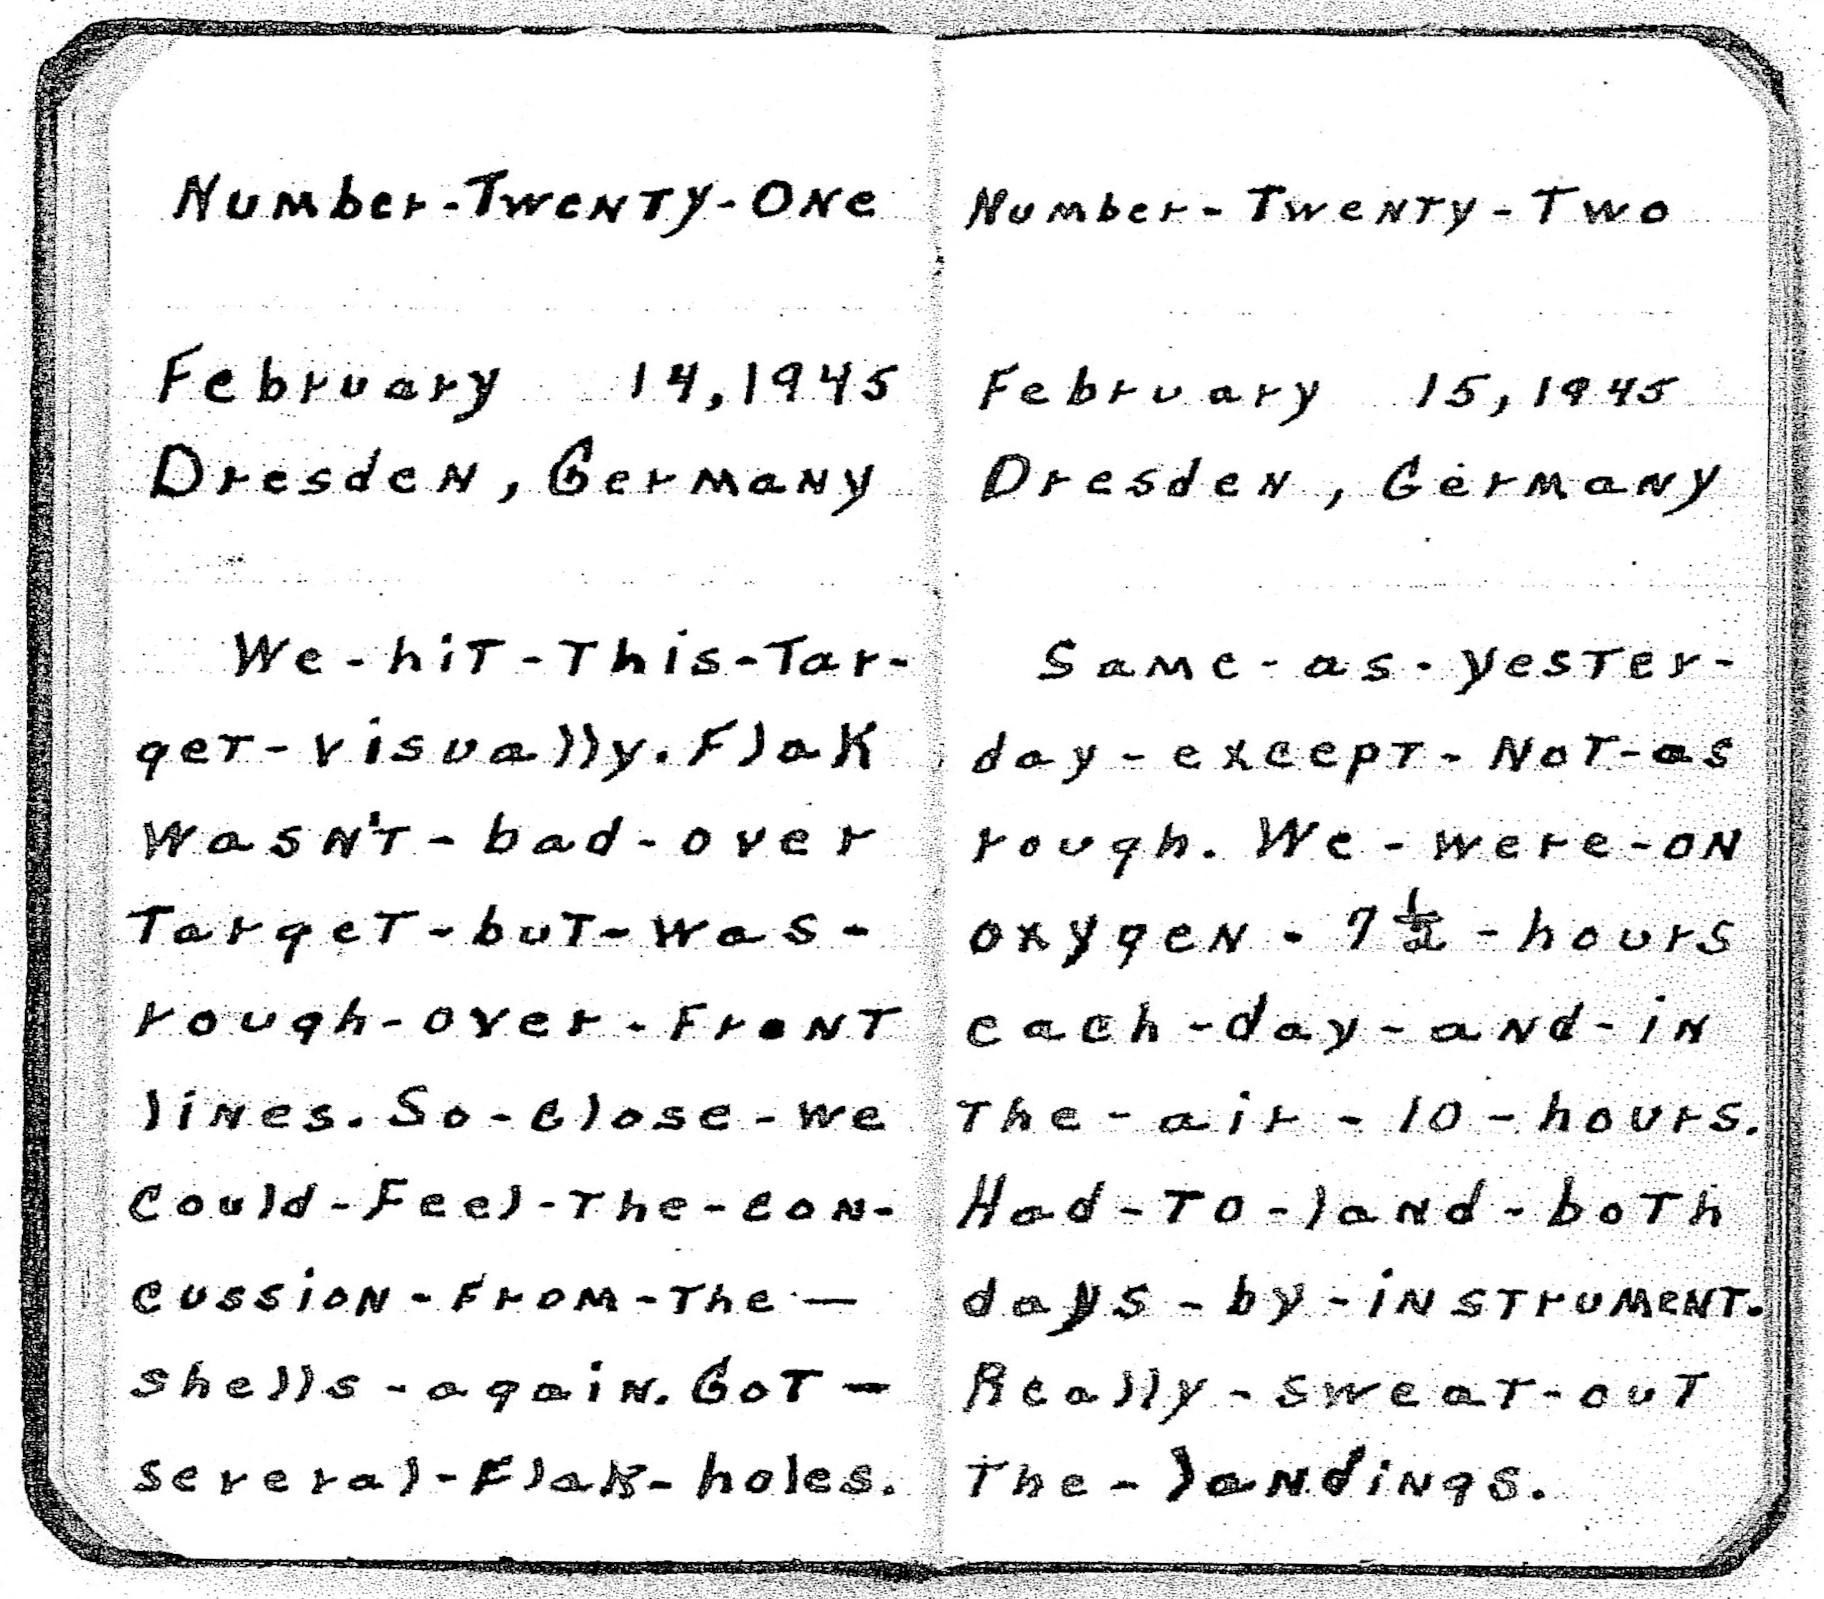 Number-Twenty-One
February 14, 1945
Dresden, Germany
We-hit-This-Tar-
get-visually. Flak
Wasn't-bad-over
Target-but-was-
rough-over-Front
lines. So-close-we
Could-Feel-The-con-
cussion-From-The-
shells-again. Got-
several-Flak-holes.
Number-Twenty-Two
February 15, 1945
Dresden, Germany
Same-as-yester-
day-except-Not-as
rough. We-were-on
oxygen-7½-hours
each-day-and-in
The-air-10-hours.
Had-To-land-both
days-by-instrument.
Really-sweat-out
The-landings.